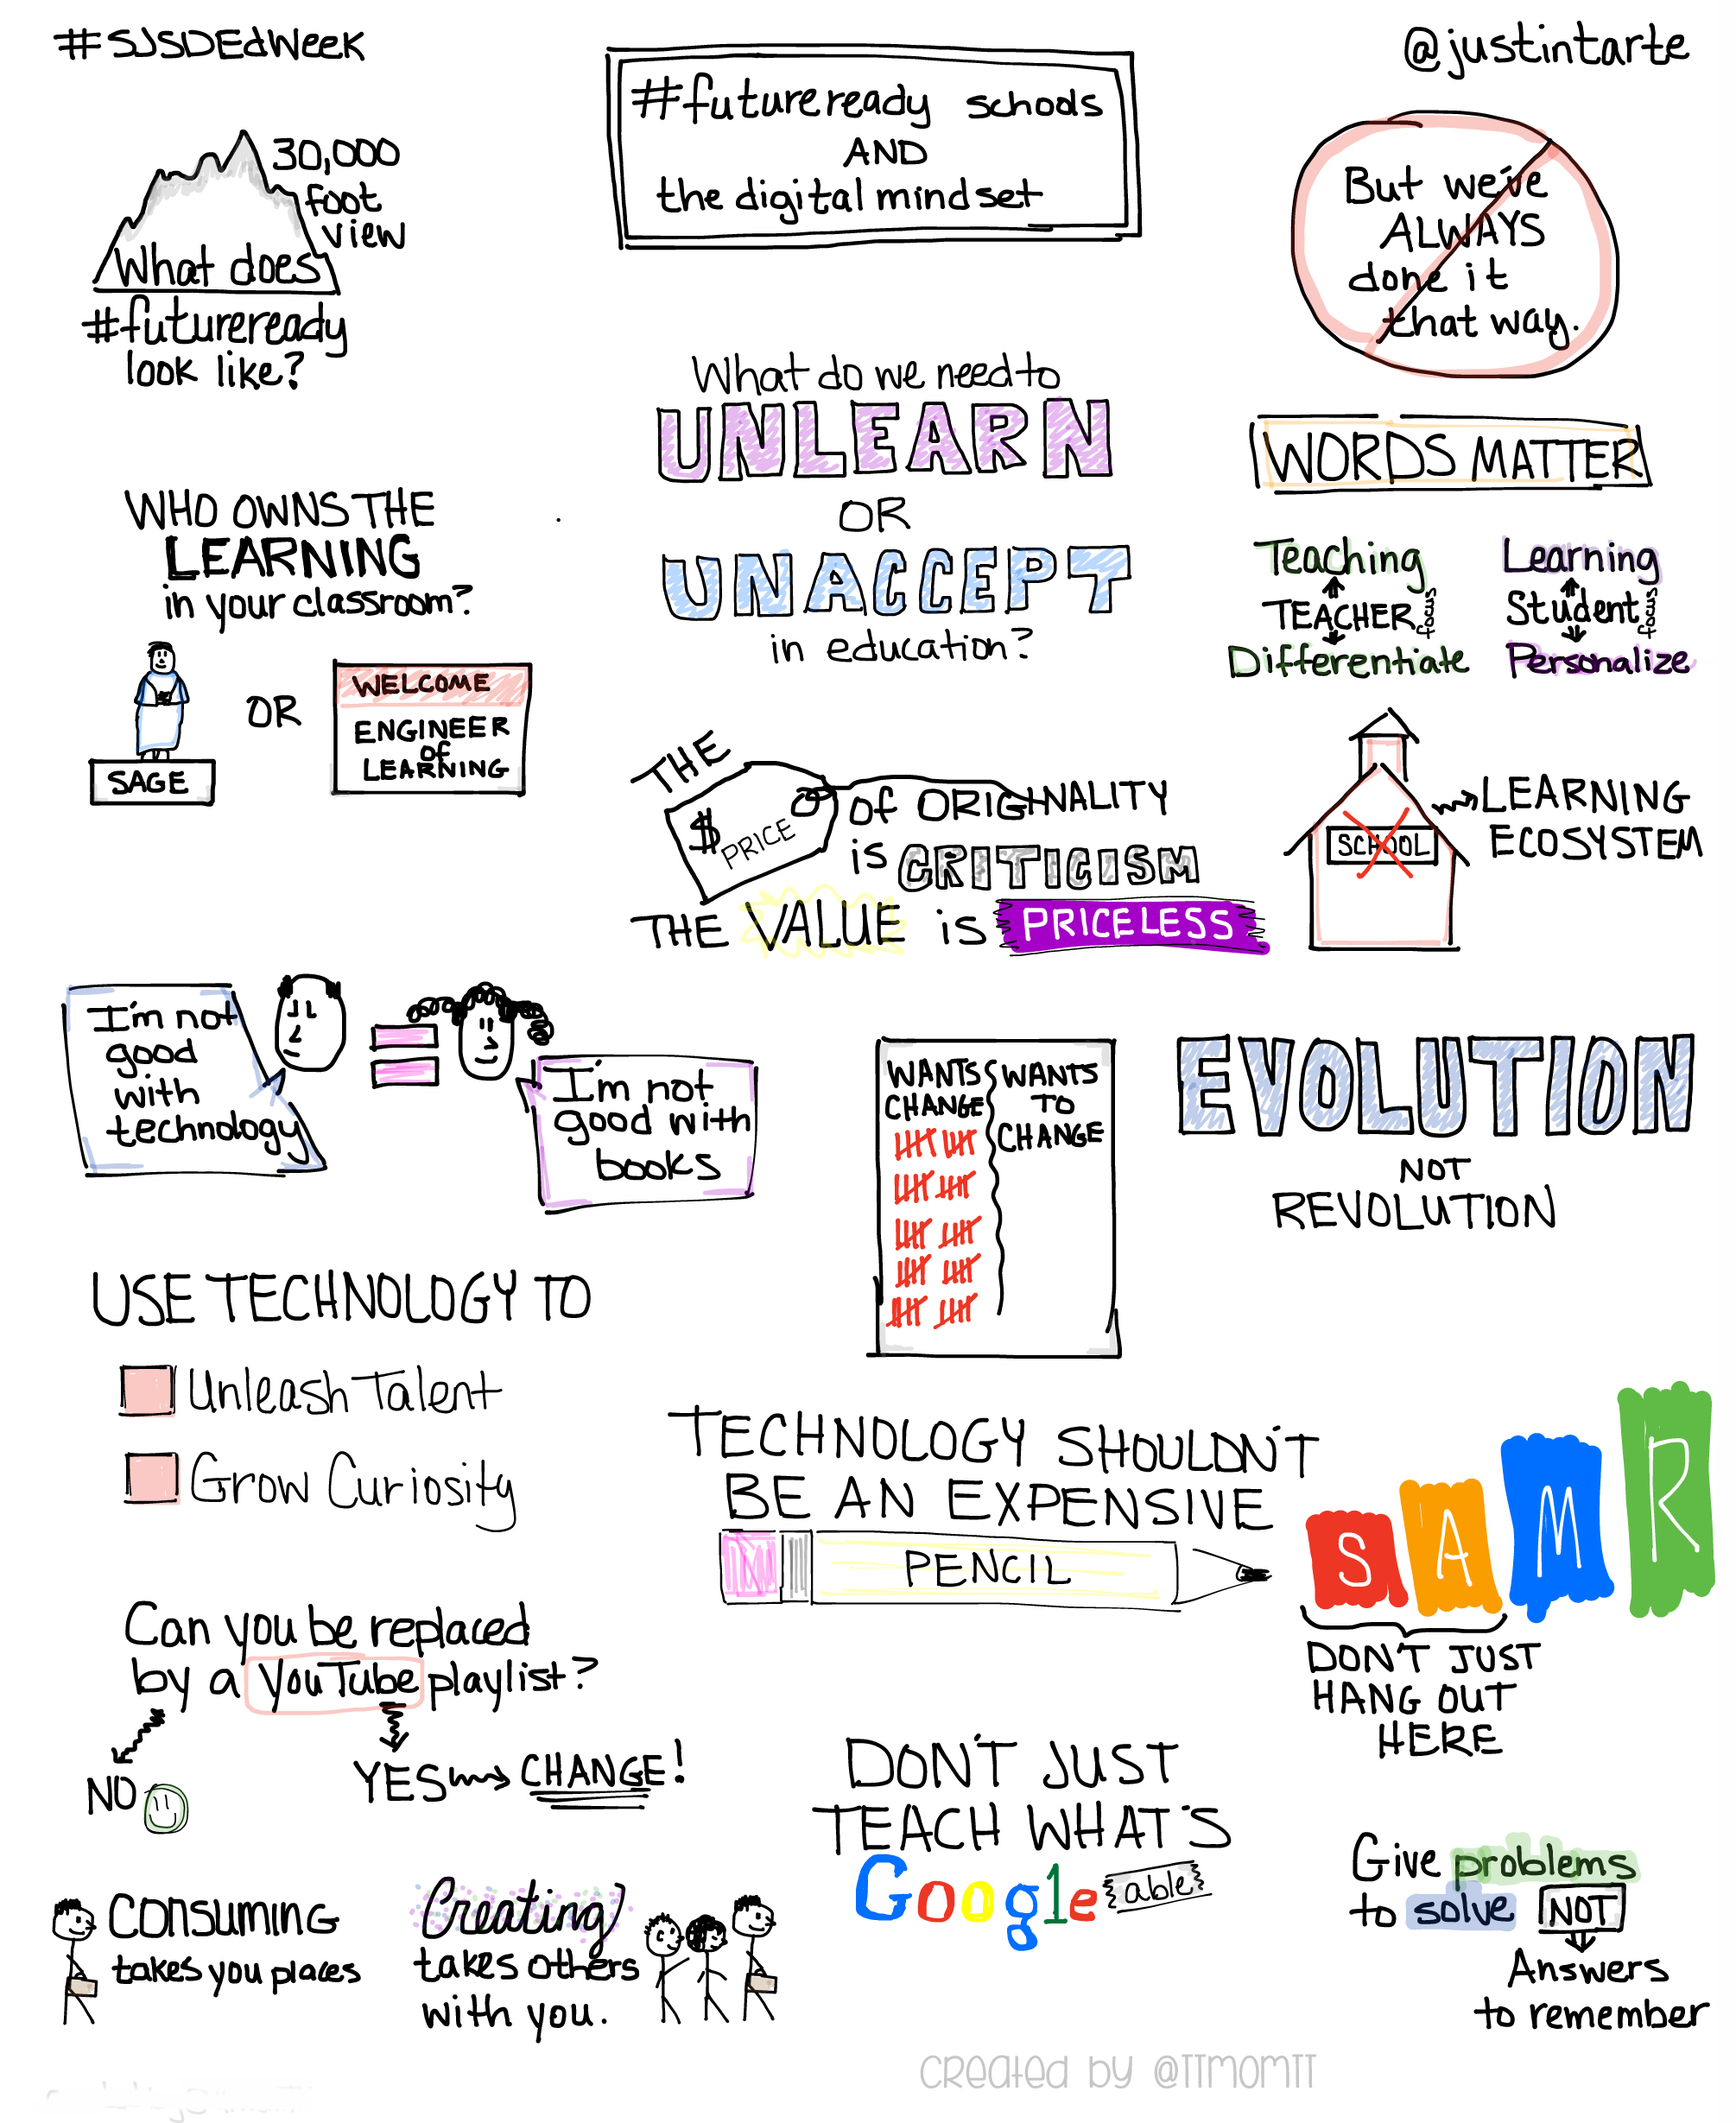 #SJSDEdWeek
#futureready schools
AND
the digital mindset
@justintarte
30,000
foot
view
What does
#futureready
look like?
But we've
ALWAYS
done it
that way.
What do we need to
UNLEARN
OR
UNACCEPT
in education?
WORDS MATTER
Teaching
TEACHER focus
Differentiate
Learning
Student focus
Personalize
WHO OWNS THE
LEARNING
in your classroom?
SAGE
OR
WELCOME
ENGINEER
of
LEARNING
THE
$ PRICE
of ORIGINALITY
is CRITICISM
THE VALUE is PRICELESS
SCHOOL
LEARNING
ECOSYSTEM
I'm not
good
with
technology
I'm not
good with
books
WANTS
CHANGE
WANTS
TO
CHANGE
EVOLUTION
NOT
REVOLUTION
USE TECHNOLOGY TO
Unleash Talent
Grow Curiosity
TECHNOLOGY SHOULDN'T
BE AN EXPENSIVE
PENCIL
SAMR
DON'T JUST
HANG OUT
HERE
Can you be replaced
by a YouTube playlist?
NO
YES CHANGE!
DON'T JUST
TEACH WHAT'S
Google able
Give problems
to solve NOT
Answers
to remember
CONSUMING
takes you places
Creating
takes others
with you.
created by @TTmomTT